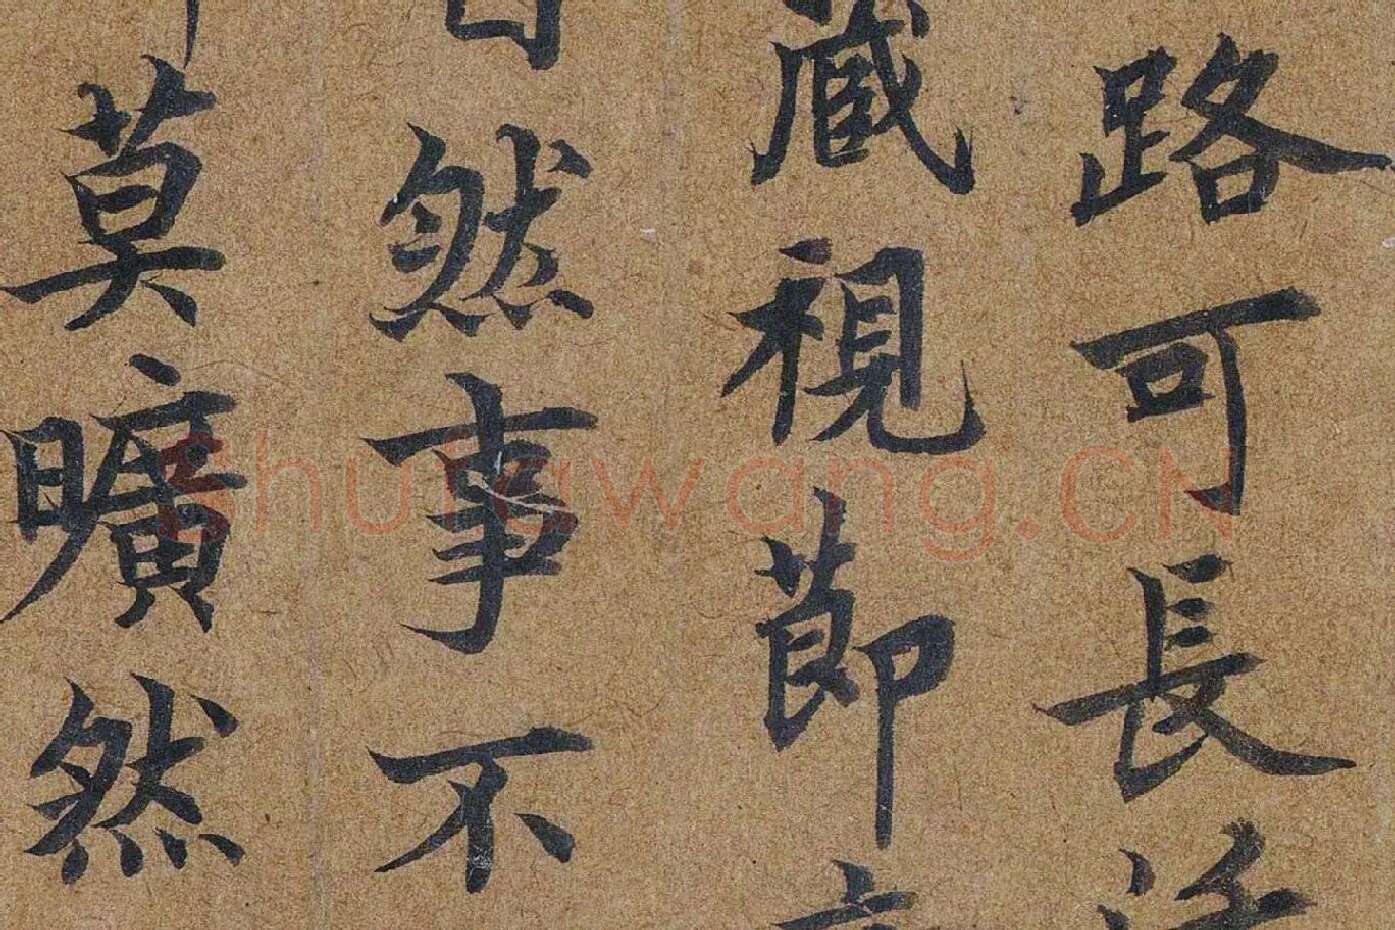 路可長活
藏視節度
自然事不
莫曠然
shufawang.CN